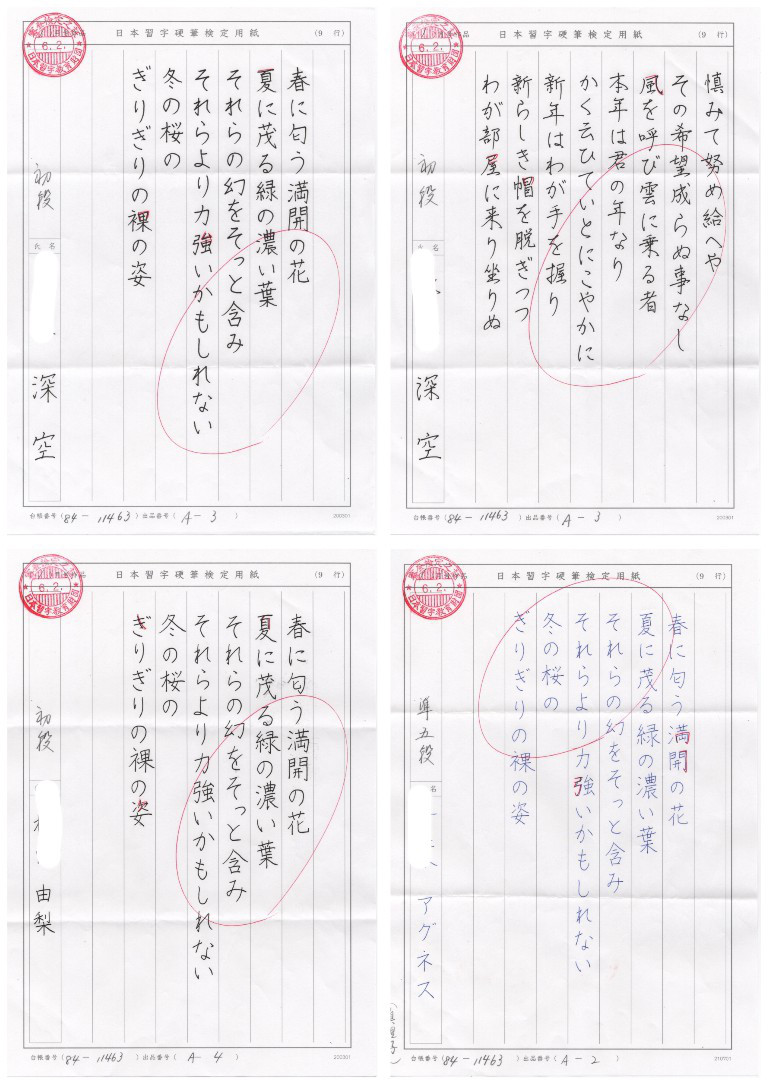 日本習字硬筆検定用紙
(9 行)
6.2.
日本習字教育財団
春に匂う満開の花
夏に茂る緑の濃い葉
それらの幻をそっと含み
それらより力強いかもしれない
冬の桜の
ぎりぎりの裸の姿
初段
氏 名
深空
台帳番号(84-11463)出品番号(A-3)
200301
日本習字硬筆検定用紙
(9 行)
6.2.
日本習字教育財団
慎みて努め給へや
その希望成らぬ事なし
風を呼び雲に乗る者
本年は君の年なり
かく云ひていとにこやかに
新年はわが手を握り
新らしき帽を脱ぎつつ
わが部屋に来り坐りぬ
初段
氏 名
深空
台帳番号(84-11463)出品番号(A-3)
200301
日本習字硬筆検定用紙
(9 行)
6.2.
日本習字教育財団
春に匂う満開の花
夏に茂る緑の濃い葉
それらの幻をそっと含み
それらより力強いかもしれない
冬の桜の
ぎりぎりの裸の姿
初段
由梨
台帳番号(84-11463)出品番号(A-4)
200301
日本習字硬筆検定用紙
(9 行)
6.2.
日本習字教育財団
春に匂う満開の花
夏に茂る緑の濃い葉
それらの幻をそっと含み
それらより力強いかもしれない
冬の桜の
ぎりぎりの裸の姿
準五段
名
アグネス
台帳番号(84-11463)出品番号(A-2)
210701